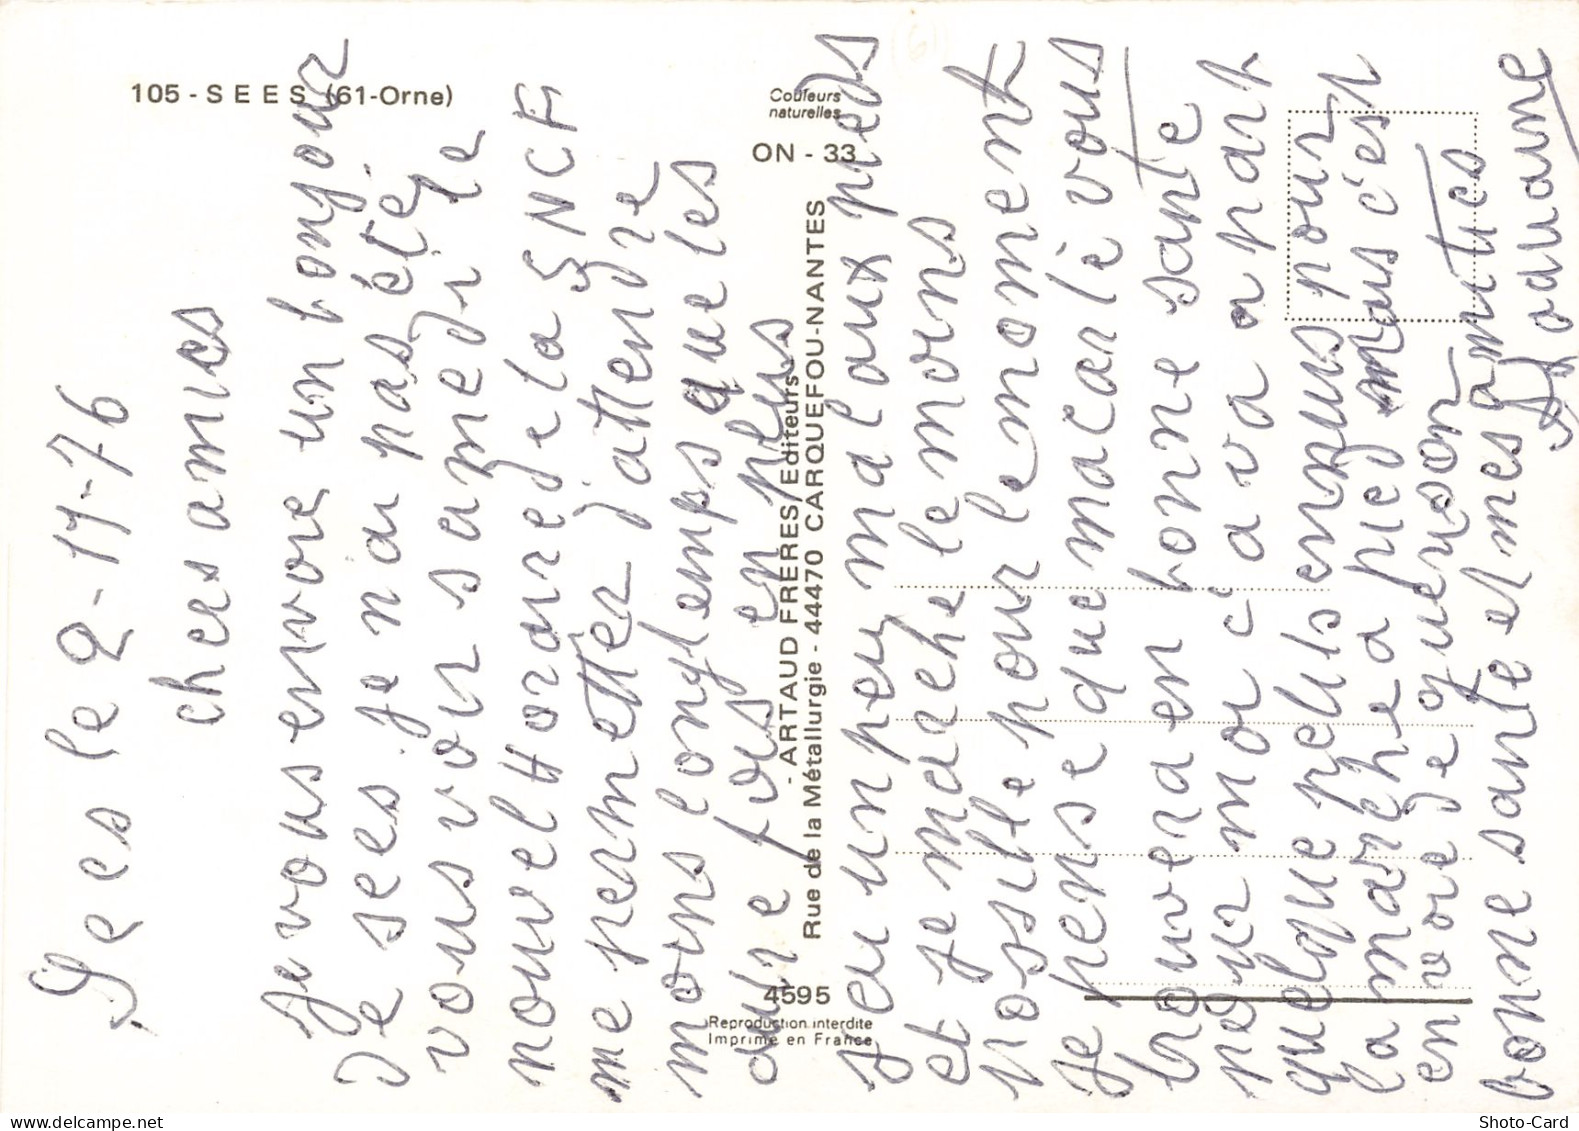 105 - SEES (61-Orne)
Couleurs
naturelles
ON - 33
- ARTAUD FRÈRES Editeurs -
Rue de la Métallurgie - 44470 CARQUEFOU-NANTES
4595
Reproduction interdite
Imprimé en France
Sees le 2-11-76
chers amies
Je vous envoie un bonjour
De sees. je nai pas été
vous voir samedi le
nouvel Horaire de la SNCF
me permetter d'attendre
moins longtemps que les
autre fois en plus
J'ai un peu mal aux pieds
et je marche le moins
possible pour le moment
Je pense que ma carte vous
trouvera en bonne santé
pour moi ca va a part
quelque petits ennuis pour
la marche a pied mais c'est
envoie je guerison
bonne santé et mes amitiés